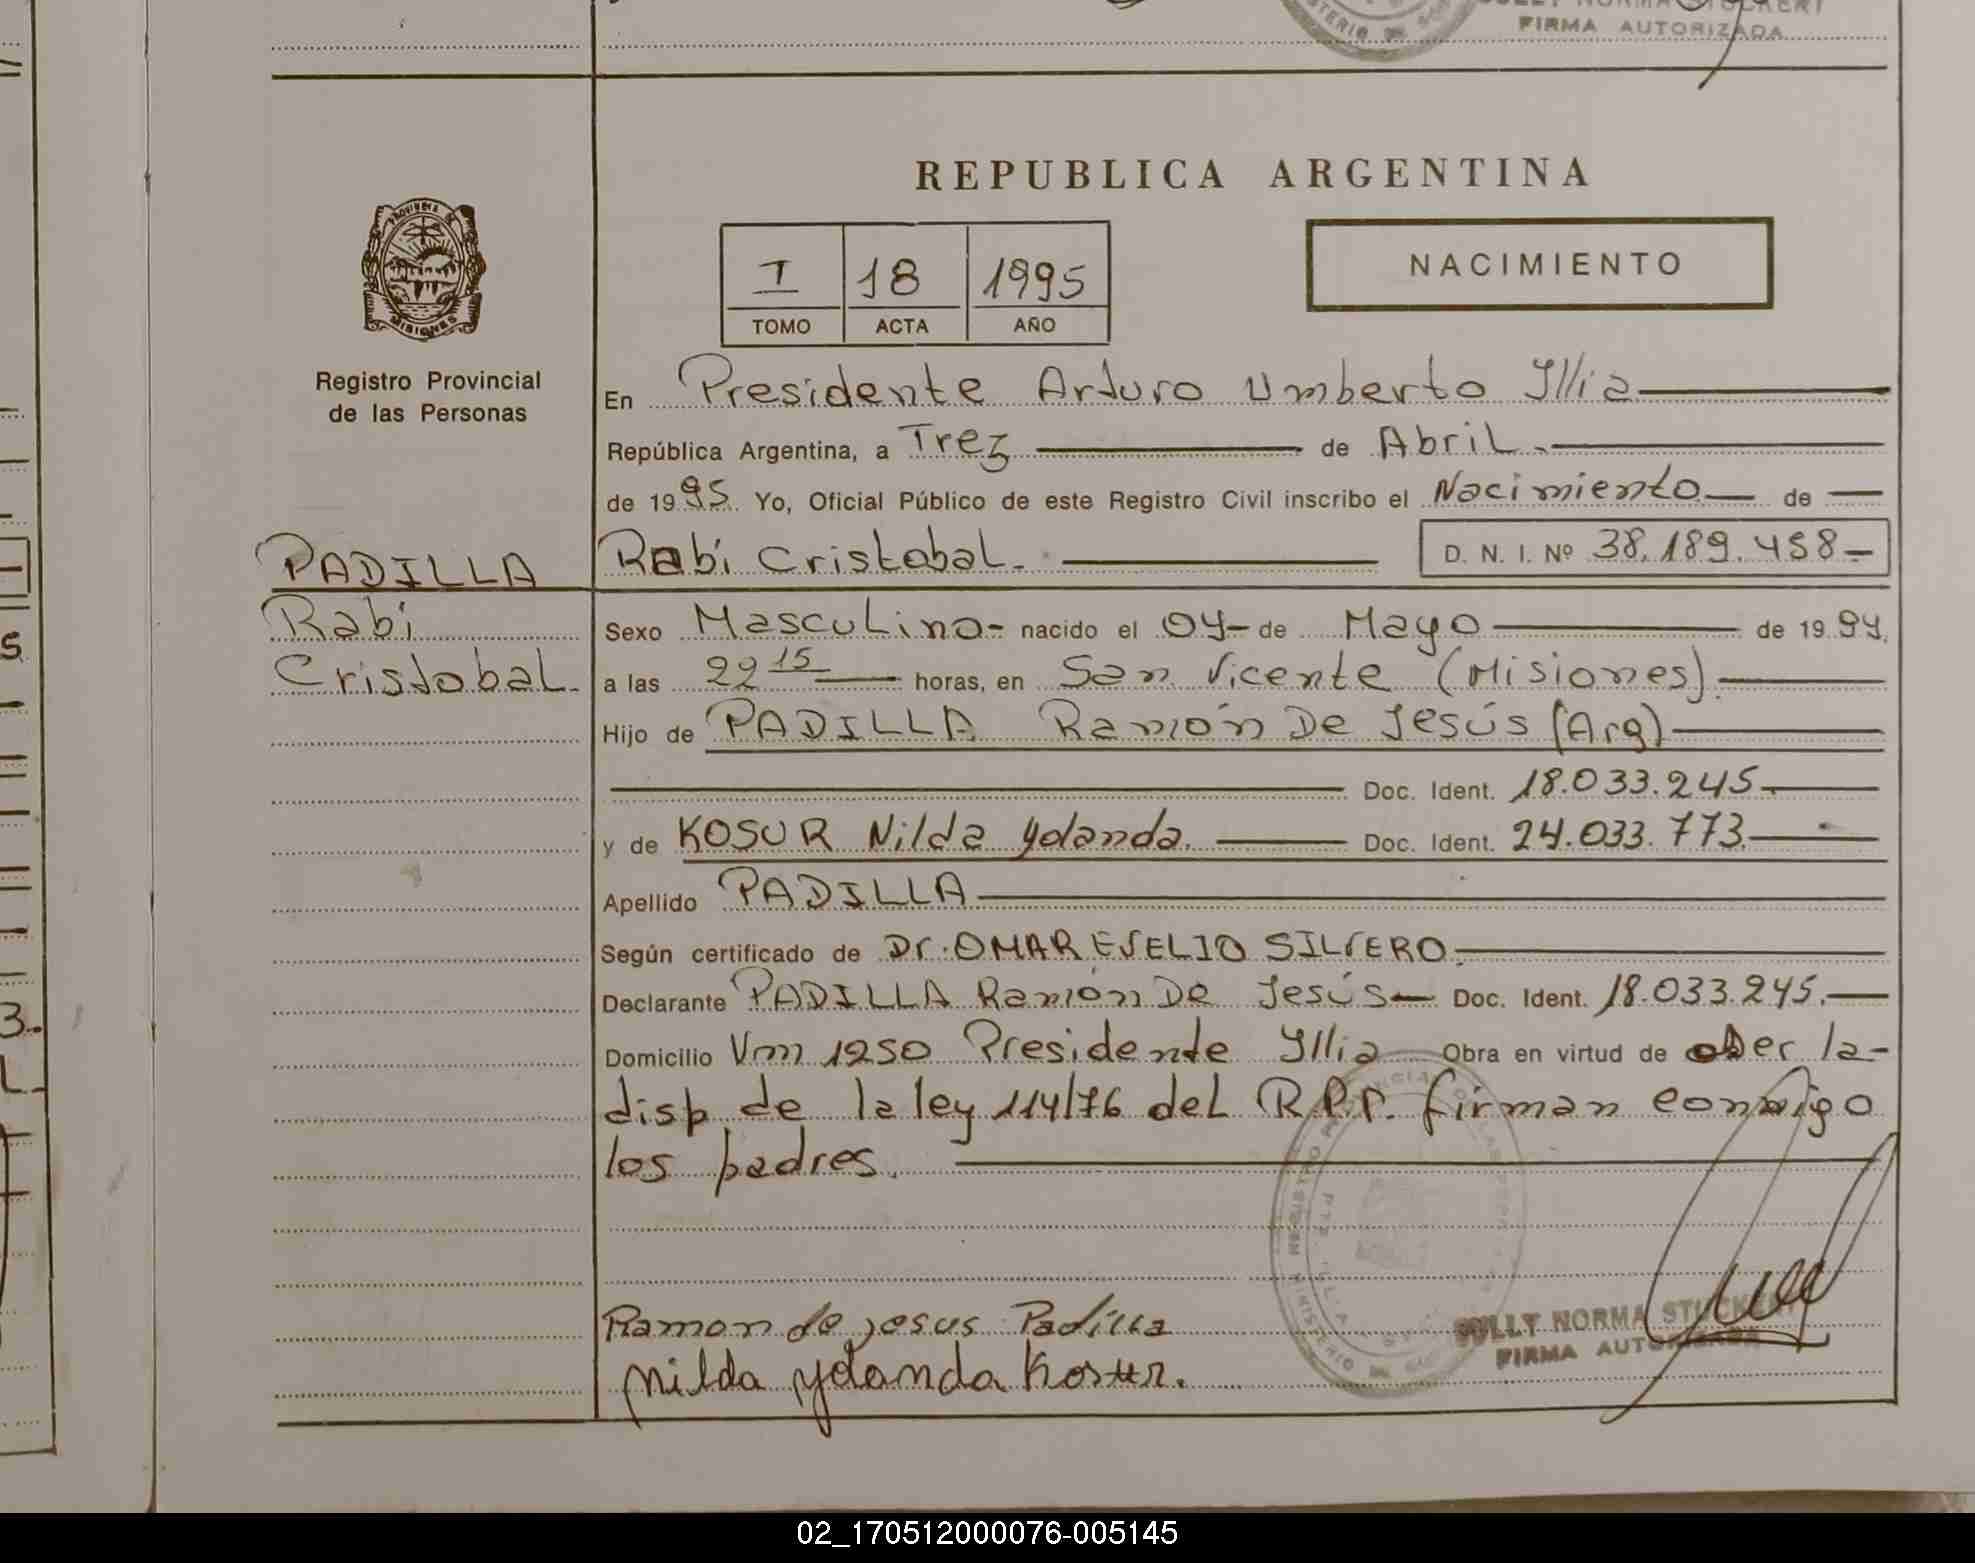 FIRMA AUTORIZADA
REPUBLICA ARGENTINA
I 18 1995
TOMO ACTA AÑO
NACIMIENTO
PROVINCIA DE
MISIONES
Registro Provincial
de las Personas
En Presidente Arturo Umberto Yllia
República Argentina, a Trez de Abril.
de 1995 Yo, Oficial Público de este Registro Civil inscribo el Nacimiento de
PADILLA Rabí Cristobal. D. N. I. Nº 38.189.458
Rabí
Cristobal.
Sexo Masculino nacido el 04 de Mayo de 1994.
a las 22 15 horas, en San Vicente (Misiones).
Hijo de PADILLA Ramón De Jesús (Arg)
Doc. Ident. 18.033.245.
y de KOSUR Nilda Yolanda. Doc. Ident. 24.033.773.
Apellido PADILLA
Según certificado de Dr. OMAR EVELIO SILVERO.
Declarante PADILLA Ramón De Jesús Doc. Ident. 18.033.245.
Domicilio Vm 1250 Presidente Yllia Obra en virtud de la
disp de la ley 114/76 del R.P.P. firman conmigo
los padres.
Ramon de jesus Padilla
Nilda yolanda Kosur.
NORMA STUCKERT
FIRMA AUTORIZADA
02_170512000076-005145